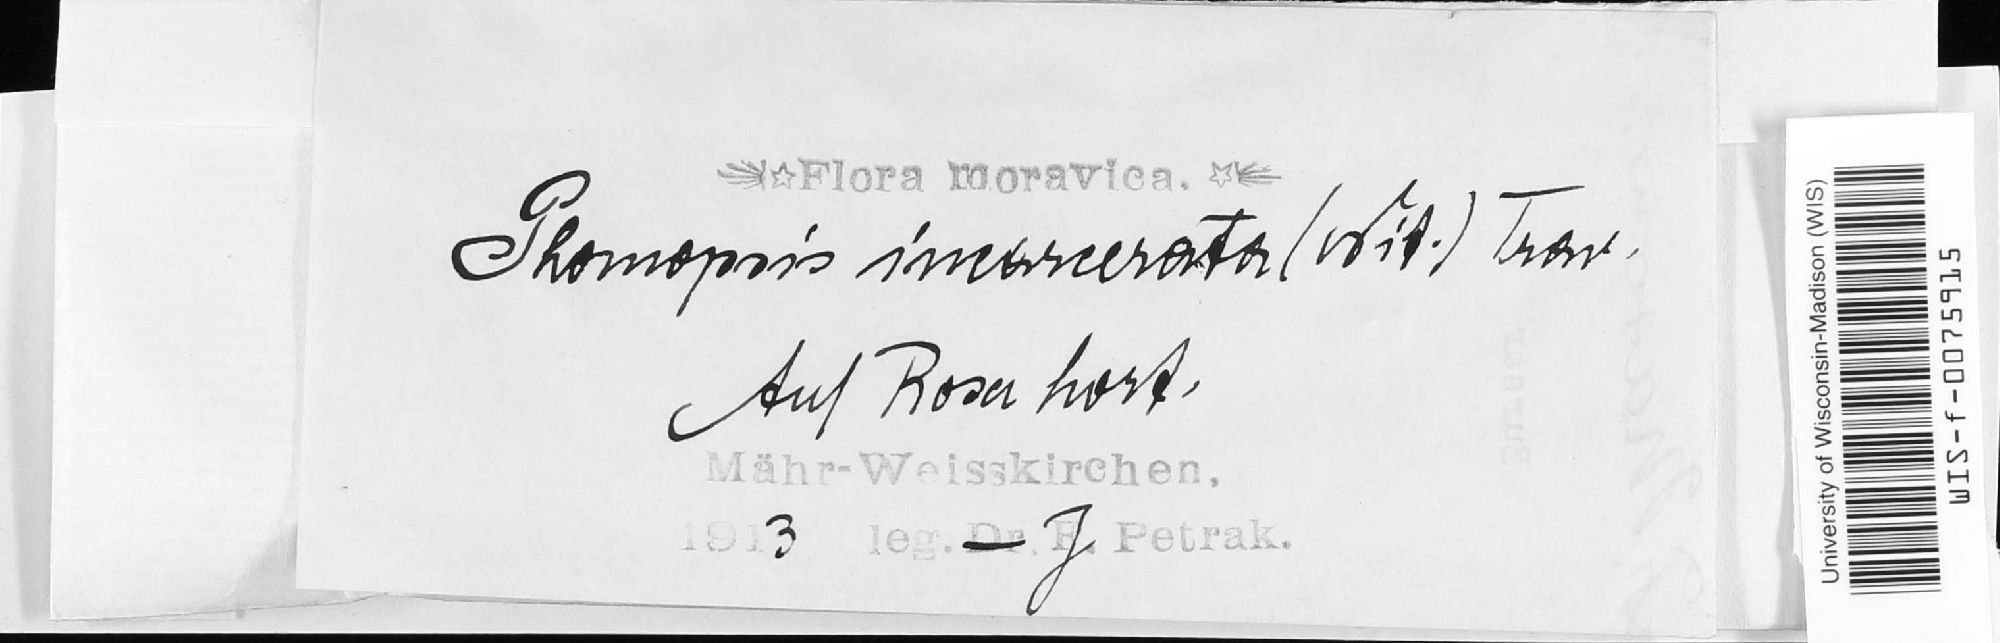 Flora moravica.
Phomopsis incarcerata Trav.
Auf Rosa hort.
Mähr-Weisskirchen,
1913 leg. Dr. F. J. Petrak.
University of Wisconsin-Madison (WIS)
WIS-f-0075915